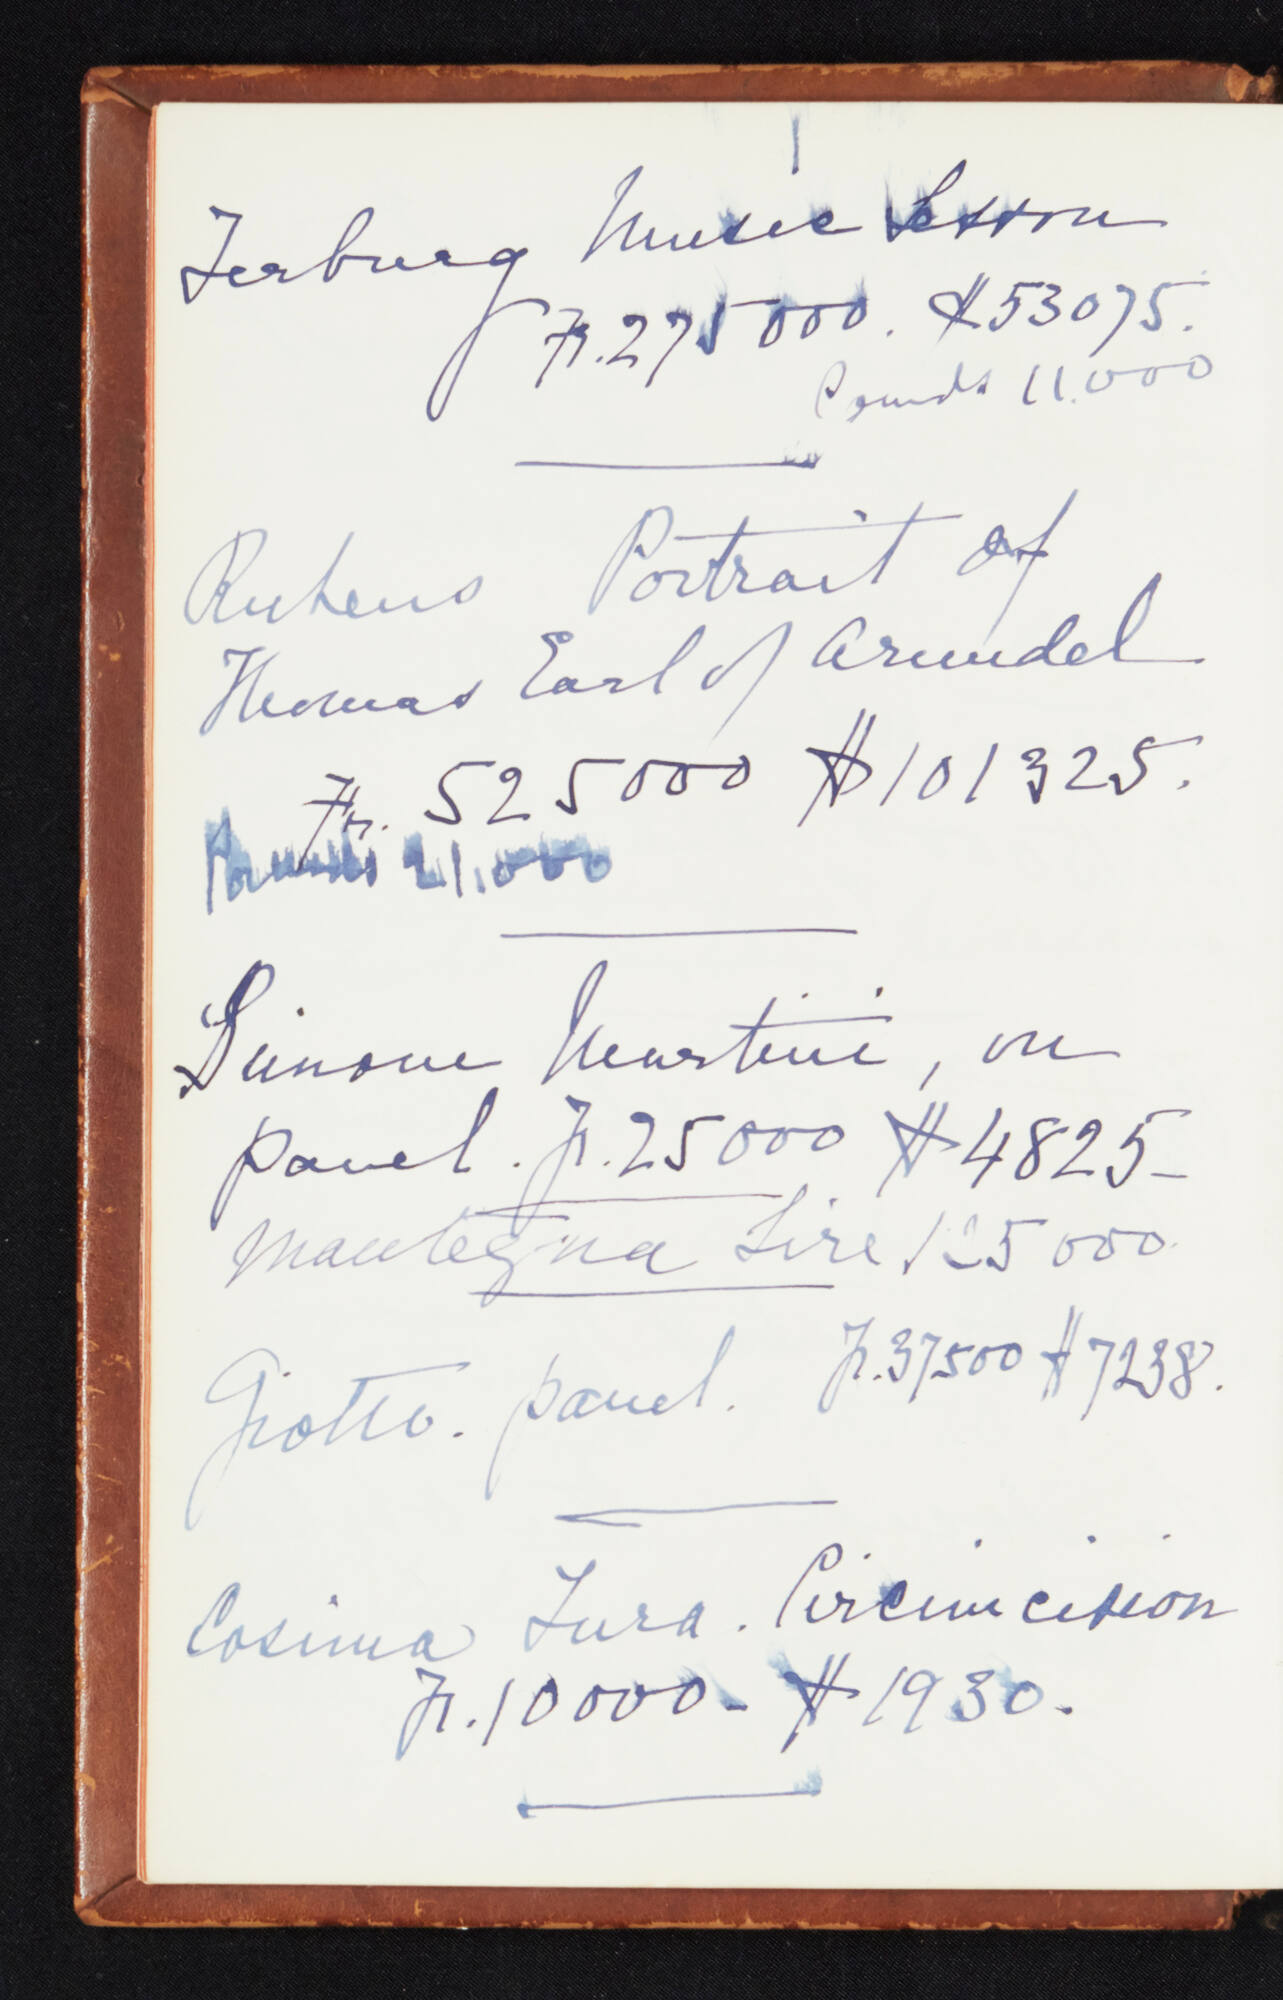 Terburg Music Lesson
Fr. 275000. $53075.
Pounds 11.000
Rubens Portrait of
Thomas Earl of Arundel
Fr. 525000 $101325.
Pounds 21.000
Simone Martini, on
panel. Fr. 25000 $4825-
Mantegna Lire 125000
Giotto. panel. Fr. 37500 $7238.
Cosima Tura. Circumcision
Fr. 10000- $1930.